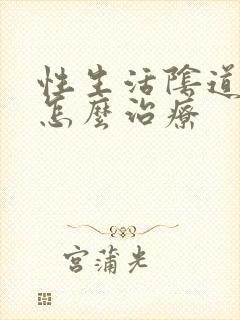 性生活陰道
怎麼治療
宮蒲光